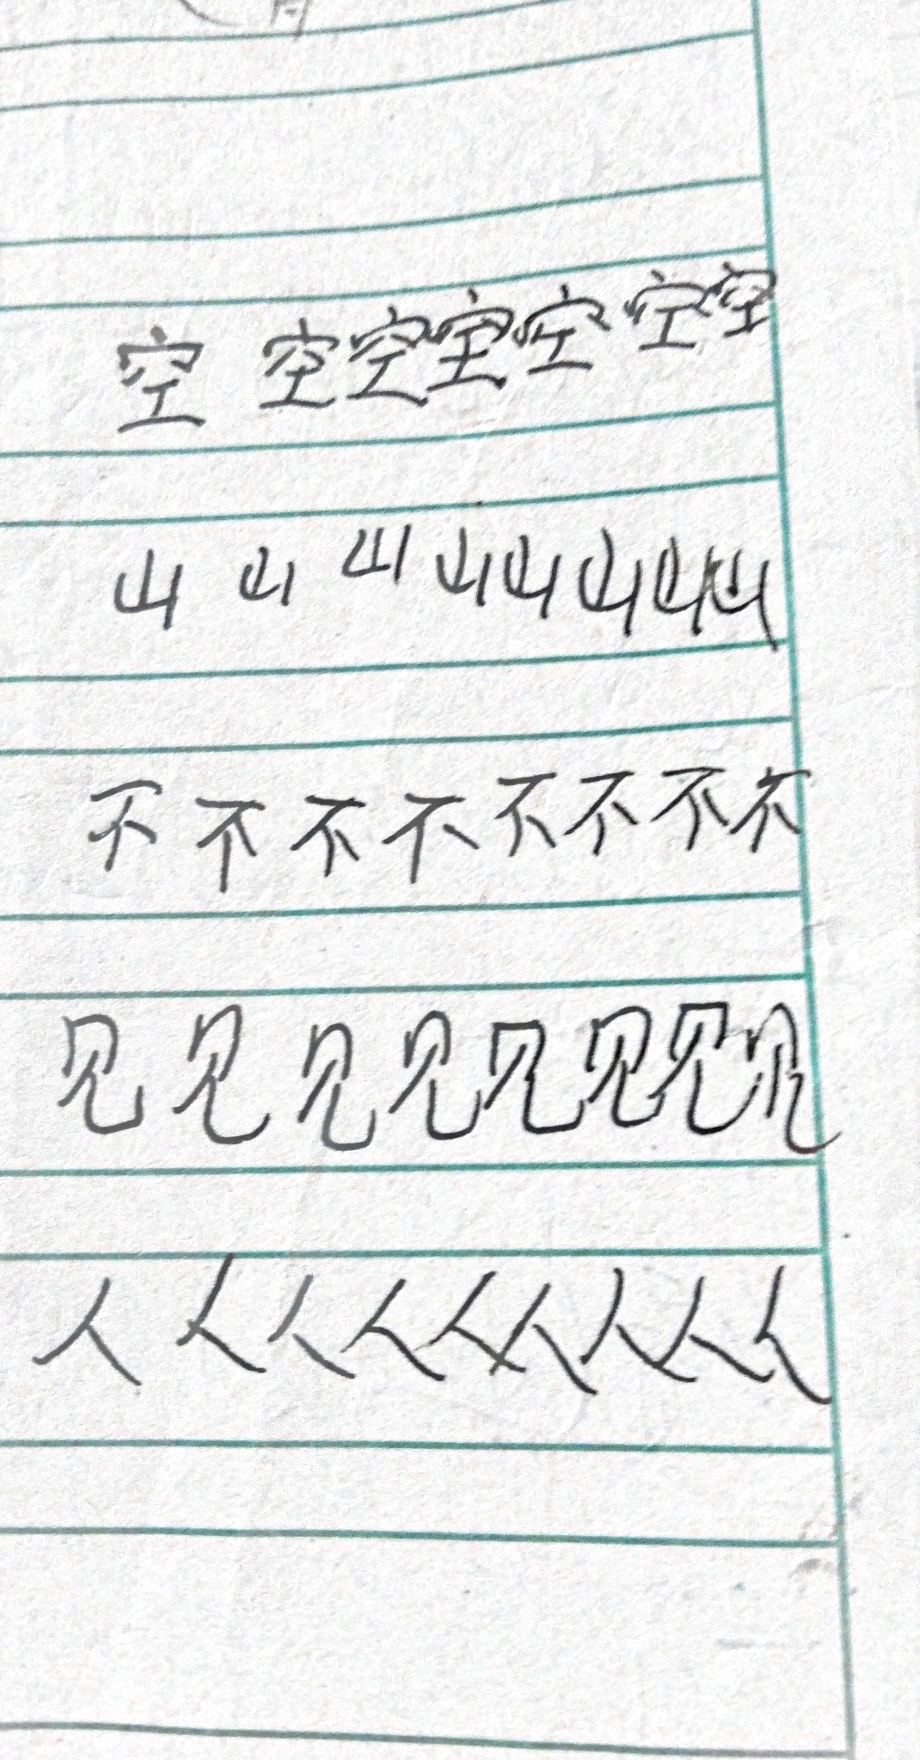 空 空 空 空 空 空 空
山 山 山 山 山 山 山 山
不 不 不 不 不 不 不 不
见 见 见 见 见 见 见 见
人 人 人 人 人 人 人 人 人